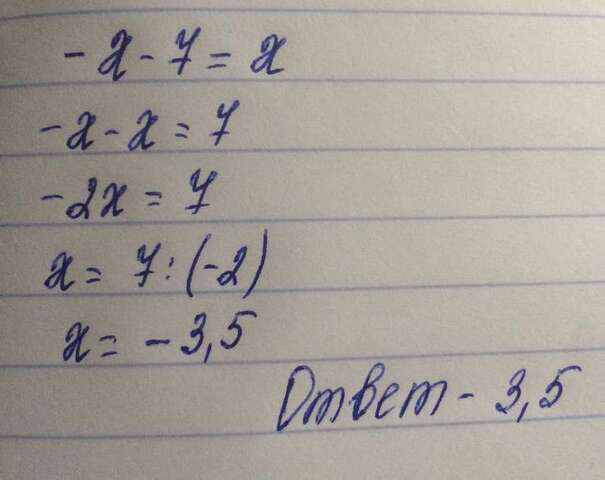 -x-7=x
-x-x=7
-2x=7
x=7:(-2)
x=-3,5
Ответ-3,5